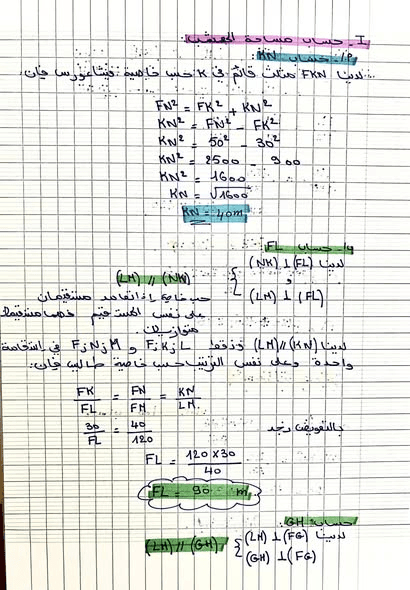 I - حساب مساحة الحديقتين
أ/- حساب KN
لدينا FKN مثلث قائم في K حسب خاصية فيثاغورس فإن:
FN² = FK² + KN²
KN² = FN² - FK²
KN² = 50² - 30²
KN² = 2500 - 900
KN² = 1600
KN = √1600
KN = 40m
ب/- حساب FL
لدينا (NK) ⊥ (FL)
و
(LM) ⊥ (FL)
(LM) // (NK)
حسب خاصية إذا تعامد مستقيمان
على نفس المستقيم فهما
متوازيان.
لدينا (LM) // (KN) والنقط F ; K ; L و F ; N ; M في استقامة
واحدة وعلى نفس الترتيب حسب خاصية طاليس فإن:
FK/FL = FN/FM = KN/LM
بالتعويض نجد
30/FL = 40/120
FL = 120 × 30 / 40
FL = 90 m
حساب GH:
لدينا (LM) ⊥ (FG)
(GH) ⊥ (FG)
(LM) // (GH)